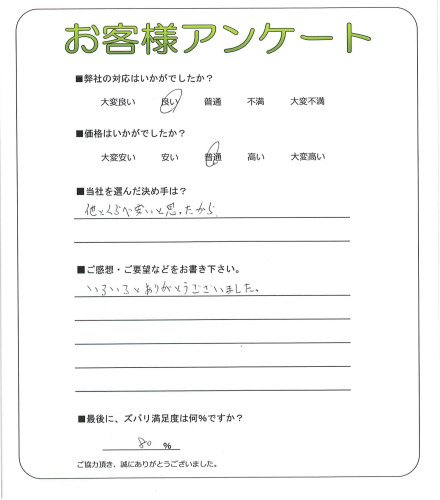 お客様アンケート
■弊社の対応はいかがでしたか？
大変良い 良い 普通 不満 大変不満
■価格はいかがでしたか？
大変安い 安い 普通 高い 大変高い
■当社を選んだ決め手は？
他とくらべ安いと思ったから
■ご感想・ご要望などをお書き下さい。
いろいろとありがとうございました。
■最後に、ズバリ満足度は何％ですか？
80 ％
ご協力頂き、誠にありがとうございました。